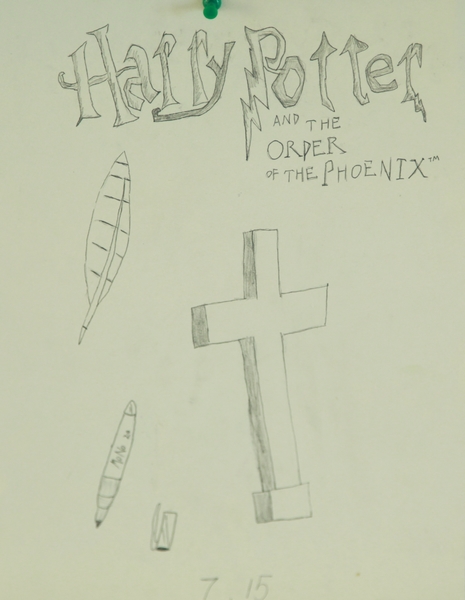 Harry Potter
AND THE
ORDER
OF THE PHOENIX™
7.15